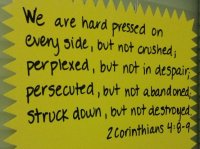 We are hard pressed on
every side, but not crushed;
perplexed, but not in despair;
persecuted, but not abandoned
struck down, but not destroyed
2 Corinthians 4:8-9